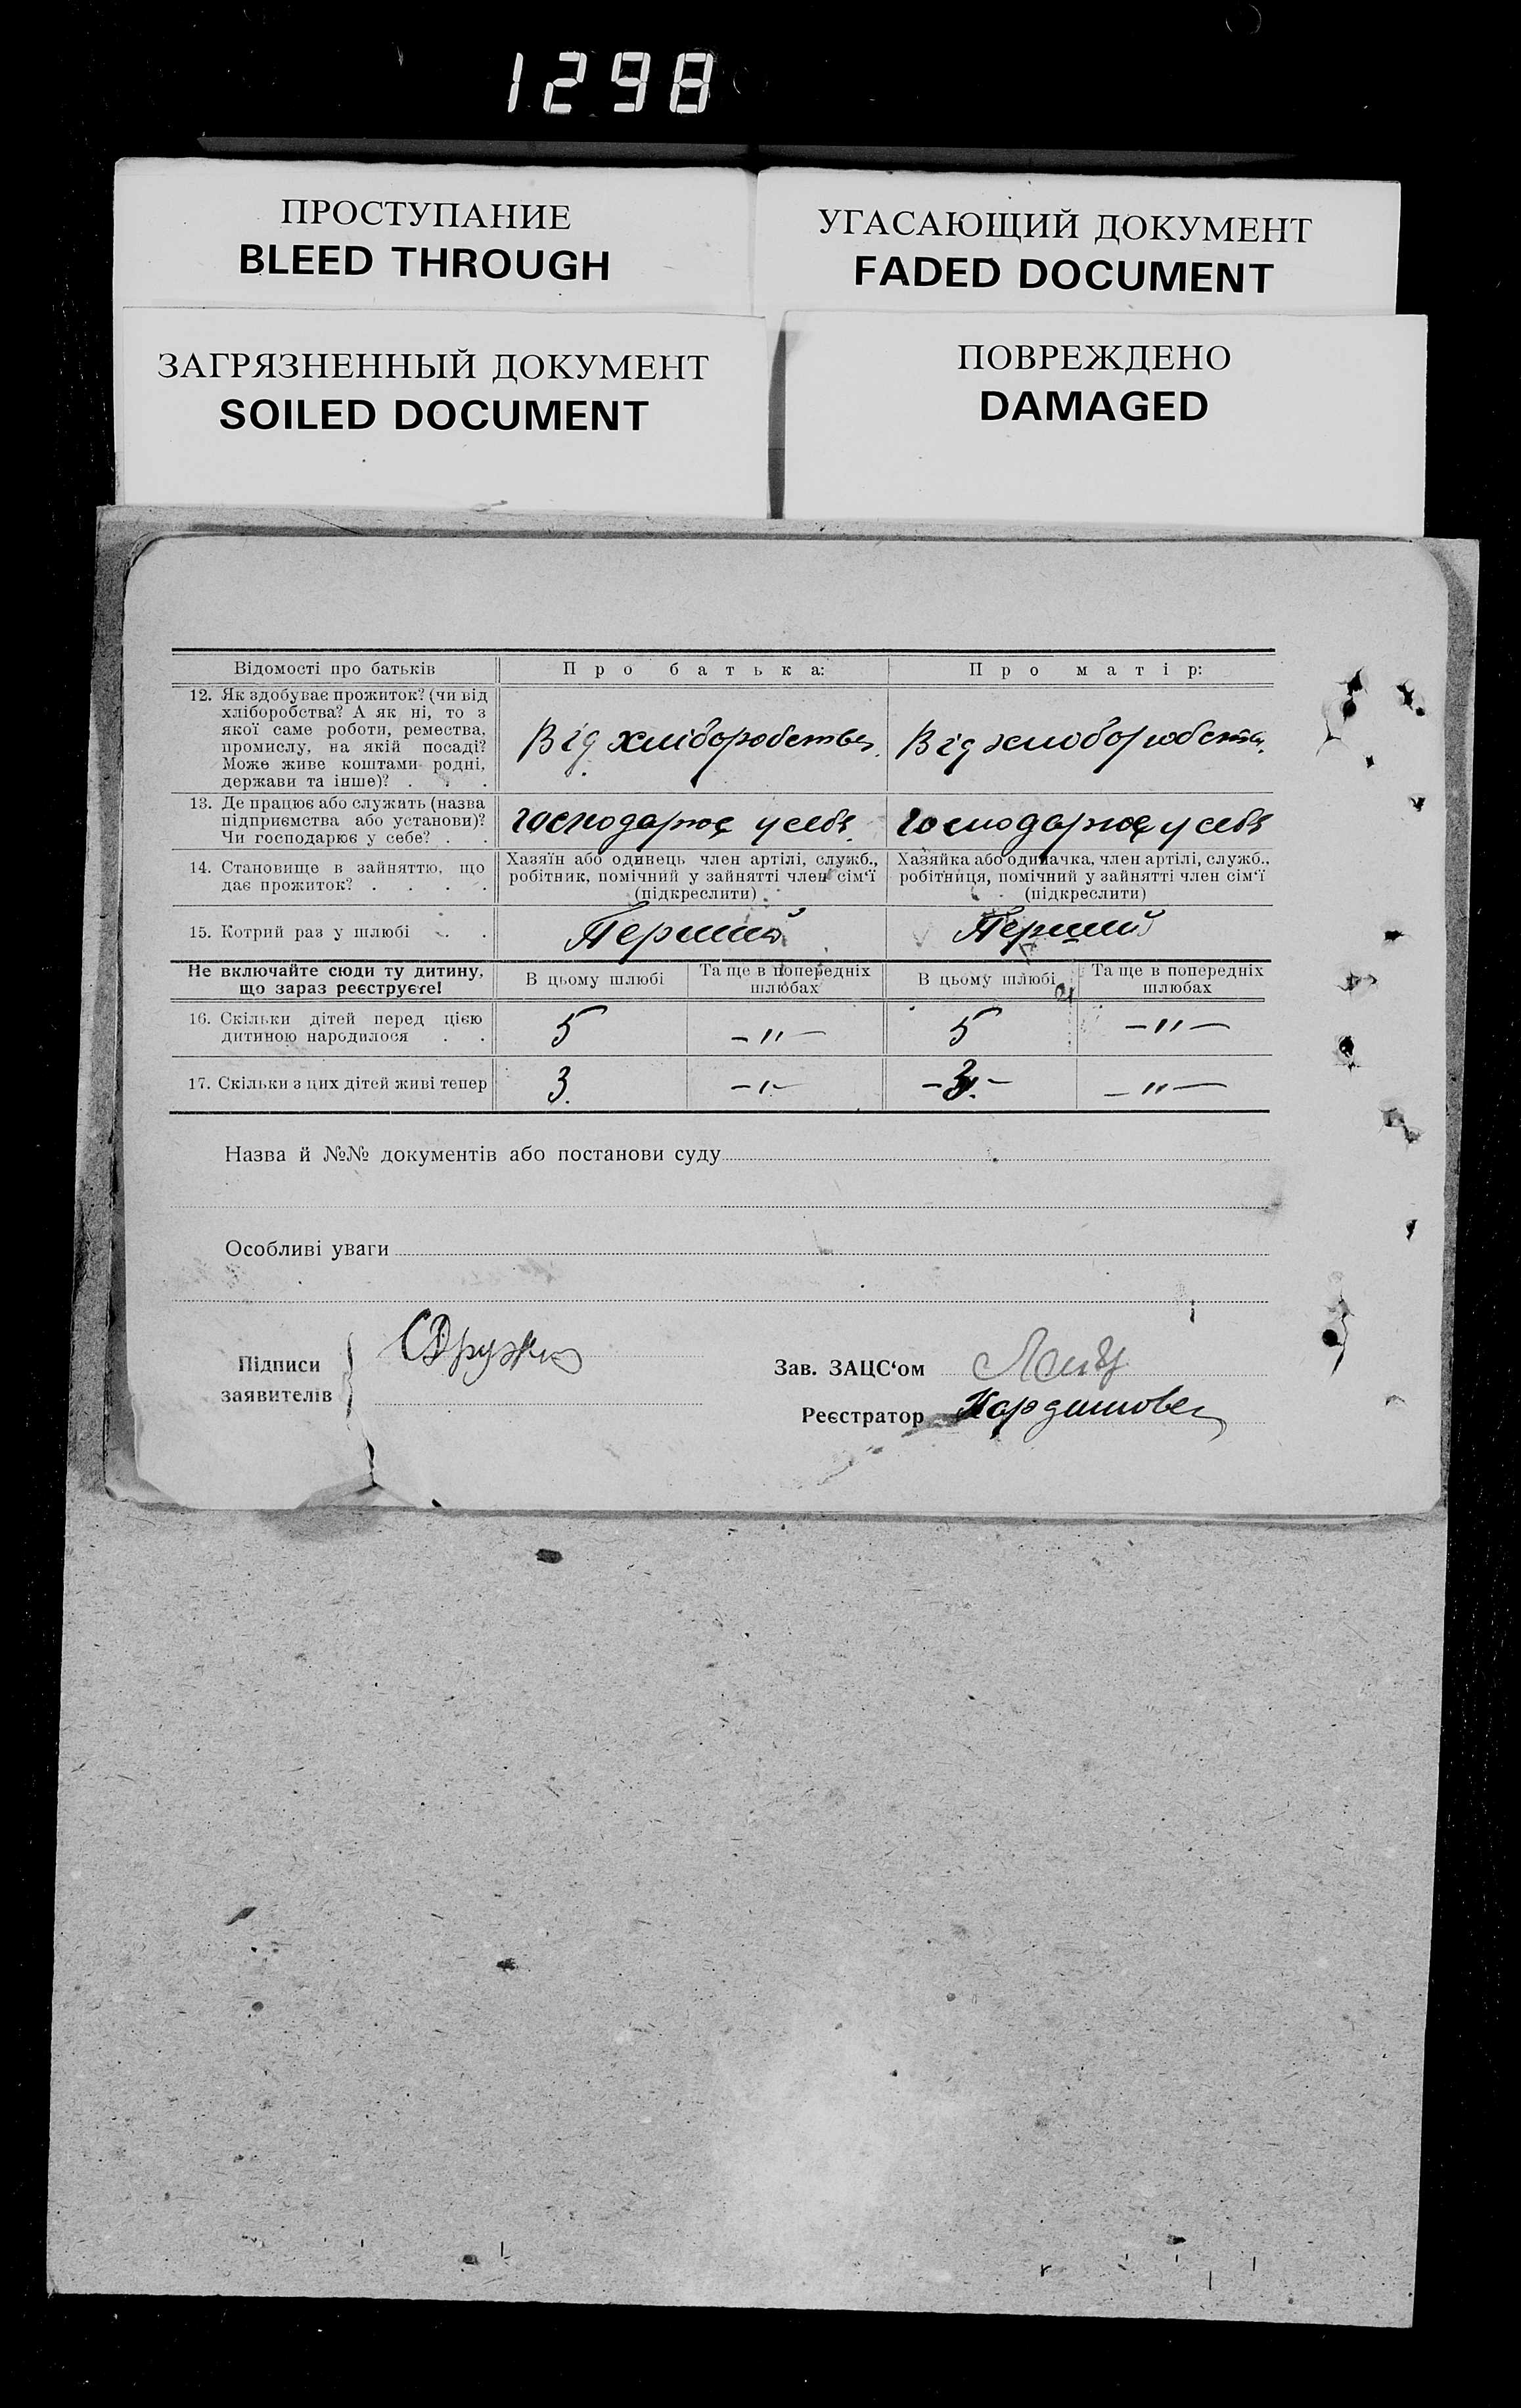 1298
ПРОСТУПАНИЕ
BLEED THROUGH
УГАСАЮЩИЙ ДОКУМЕНТ
FADED DOCUMENT
ЗАГРЯЗНЕННЫЙ ДОКУМЕНТ
SOILED DOCUMENT
ПОВРЕЖДЕНО
DAMAGED
Відомості про батьків
Про батька:
Про матір:
12. Як здобуває прожиток? (чи від
хліборобства? А як ні, то з
якої саме роботи, ремества,
промислу, на якій посаді?
Може живе коштами родні,
держави та інше)? . . .
Від хліборобства.
Від хлиборобства.
13. Де працює або служить (назва
підприємства або установи)?
Чи господарює у себе? . .
господарює у себе.
господарює у себе
14. Становище в зайняттю, що
дає прожиток? . . . .
Хазяїн або одинець член артілі, служб.,
робітник, помічний у зайнятті член сім‘ї
(підкреслити)
Хазяйка або одиначка, член артілі, служб.,
робітниця, помічний у зайнятті член сім‘ї
(підкреслити)
15. Котрий раз у шлюбі . .
Перший
Перший
Не включайте сюди ту дитину,
що зараз реєструєте!
В цьому шлюбі
Та ще в попередніх
шлюбах
В цьому шлюбі
Та ще в попередніх
шлюбах
16. Скільки дітей перед цією
дитиною народилося . .
5
–"–
5
–"–
17. Скільки з цих дітей живі тепер
3.
–"–
–3.–
–"–
Назва й №№ документів або постанови суду
Особливі уваги
Підписи
заявителів
Зав. ЗАЦС‘ом
Реєстратор